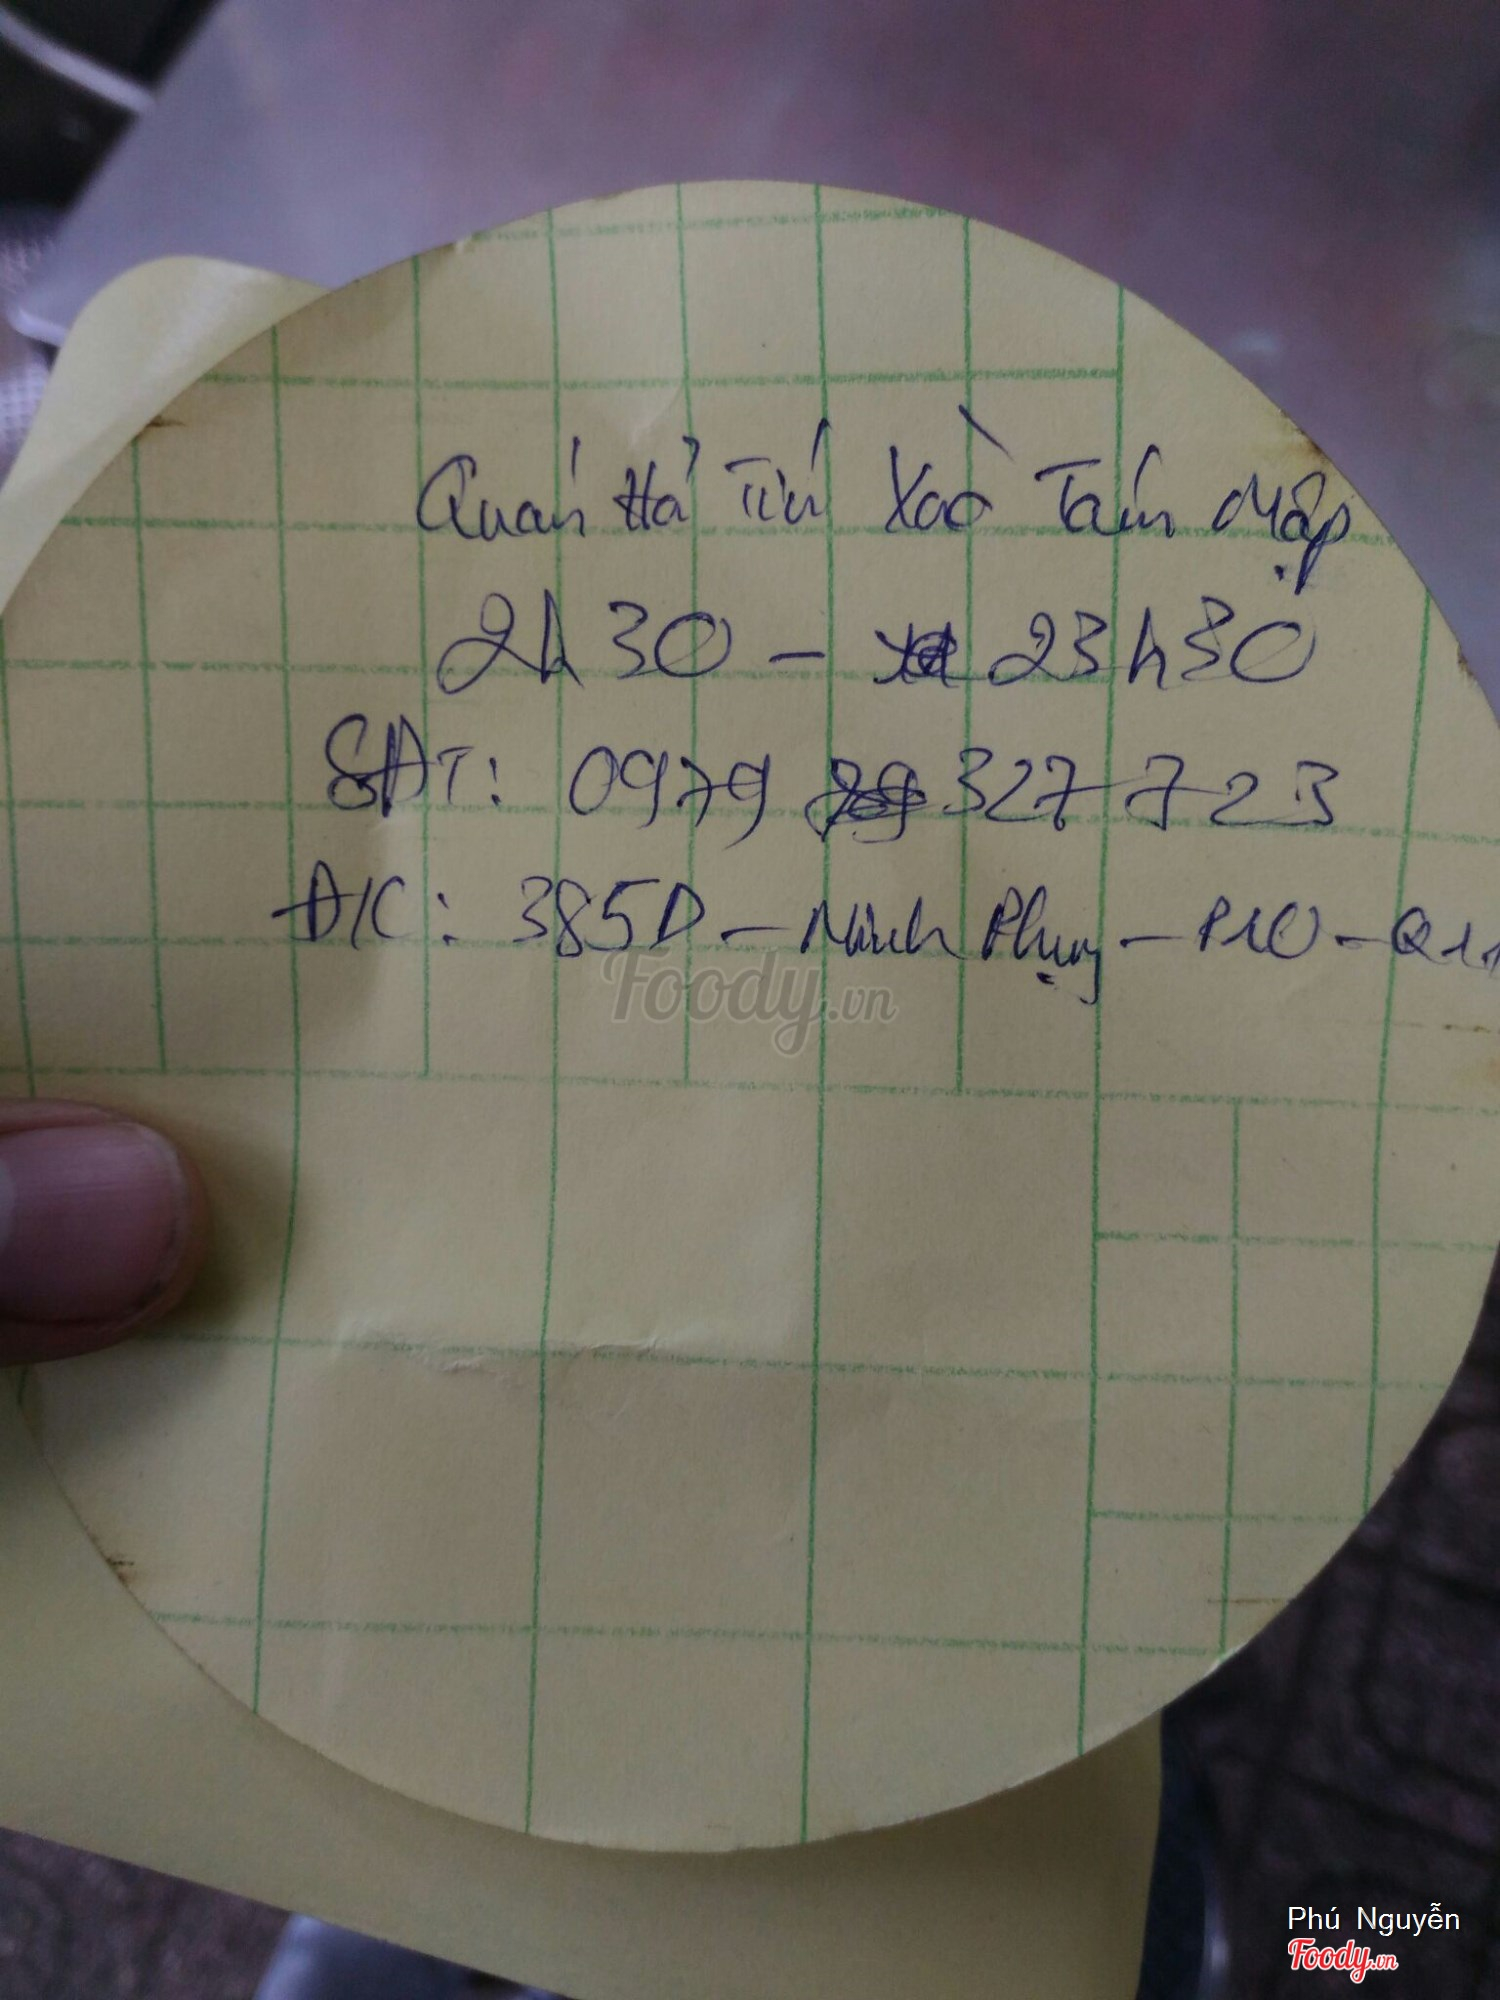 Quán Hủ Tiếu Xào Tám Mập
2h30 - 23h30
SĐT: 0979 327 723
Đ/C: 385D - Minh Phụng - P10 - Q11
Foody.vn
Phú Nguyễn
Foody.vn